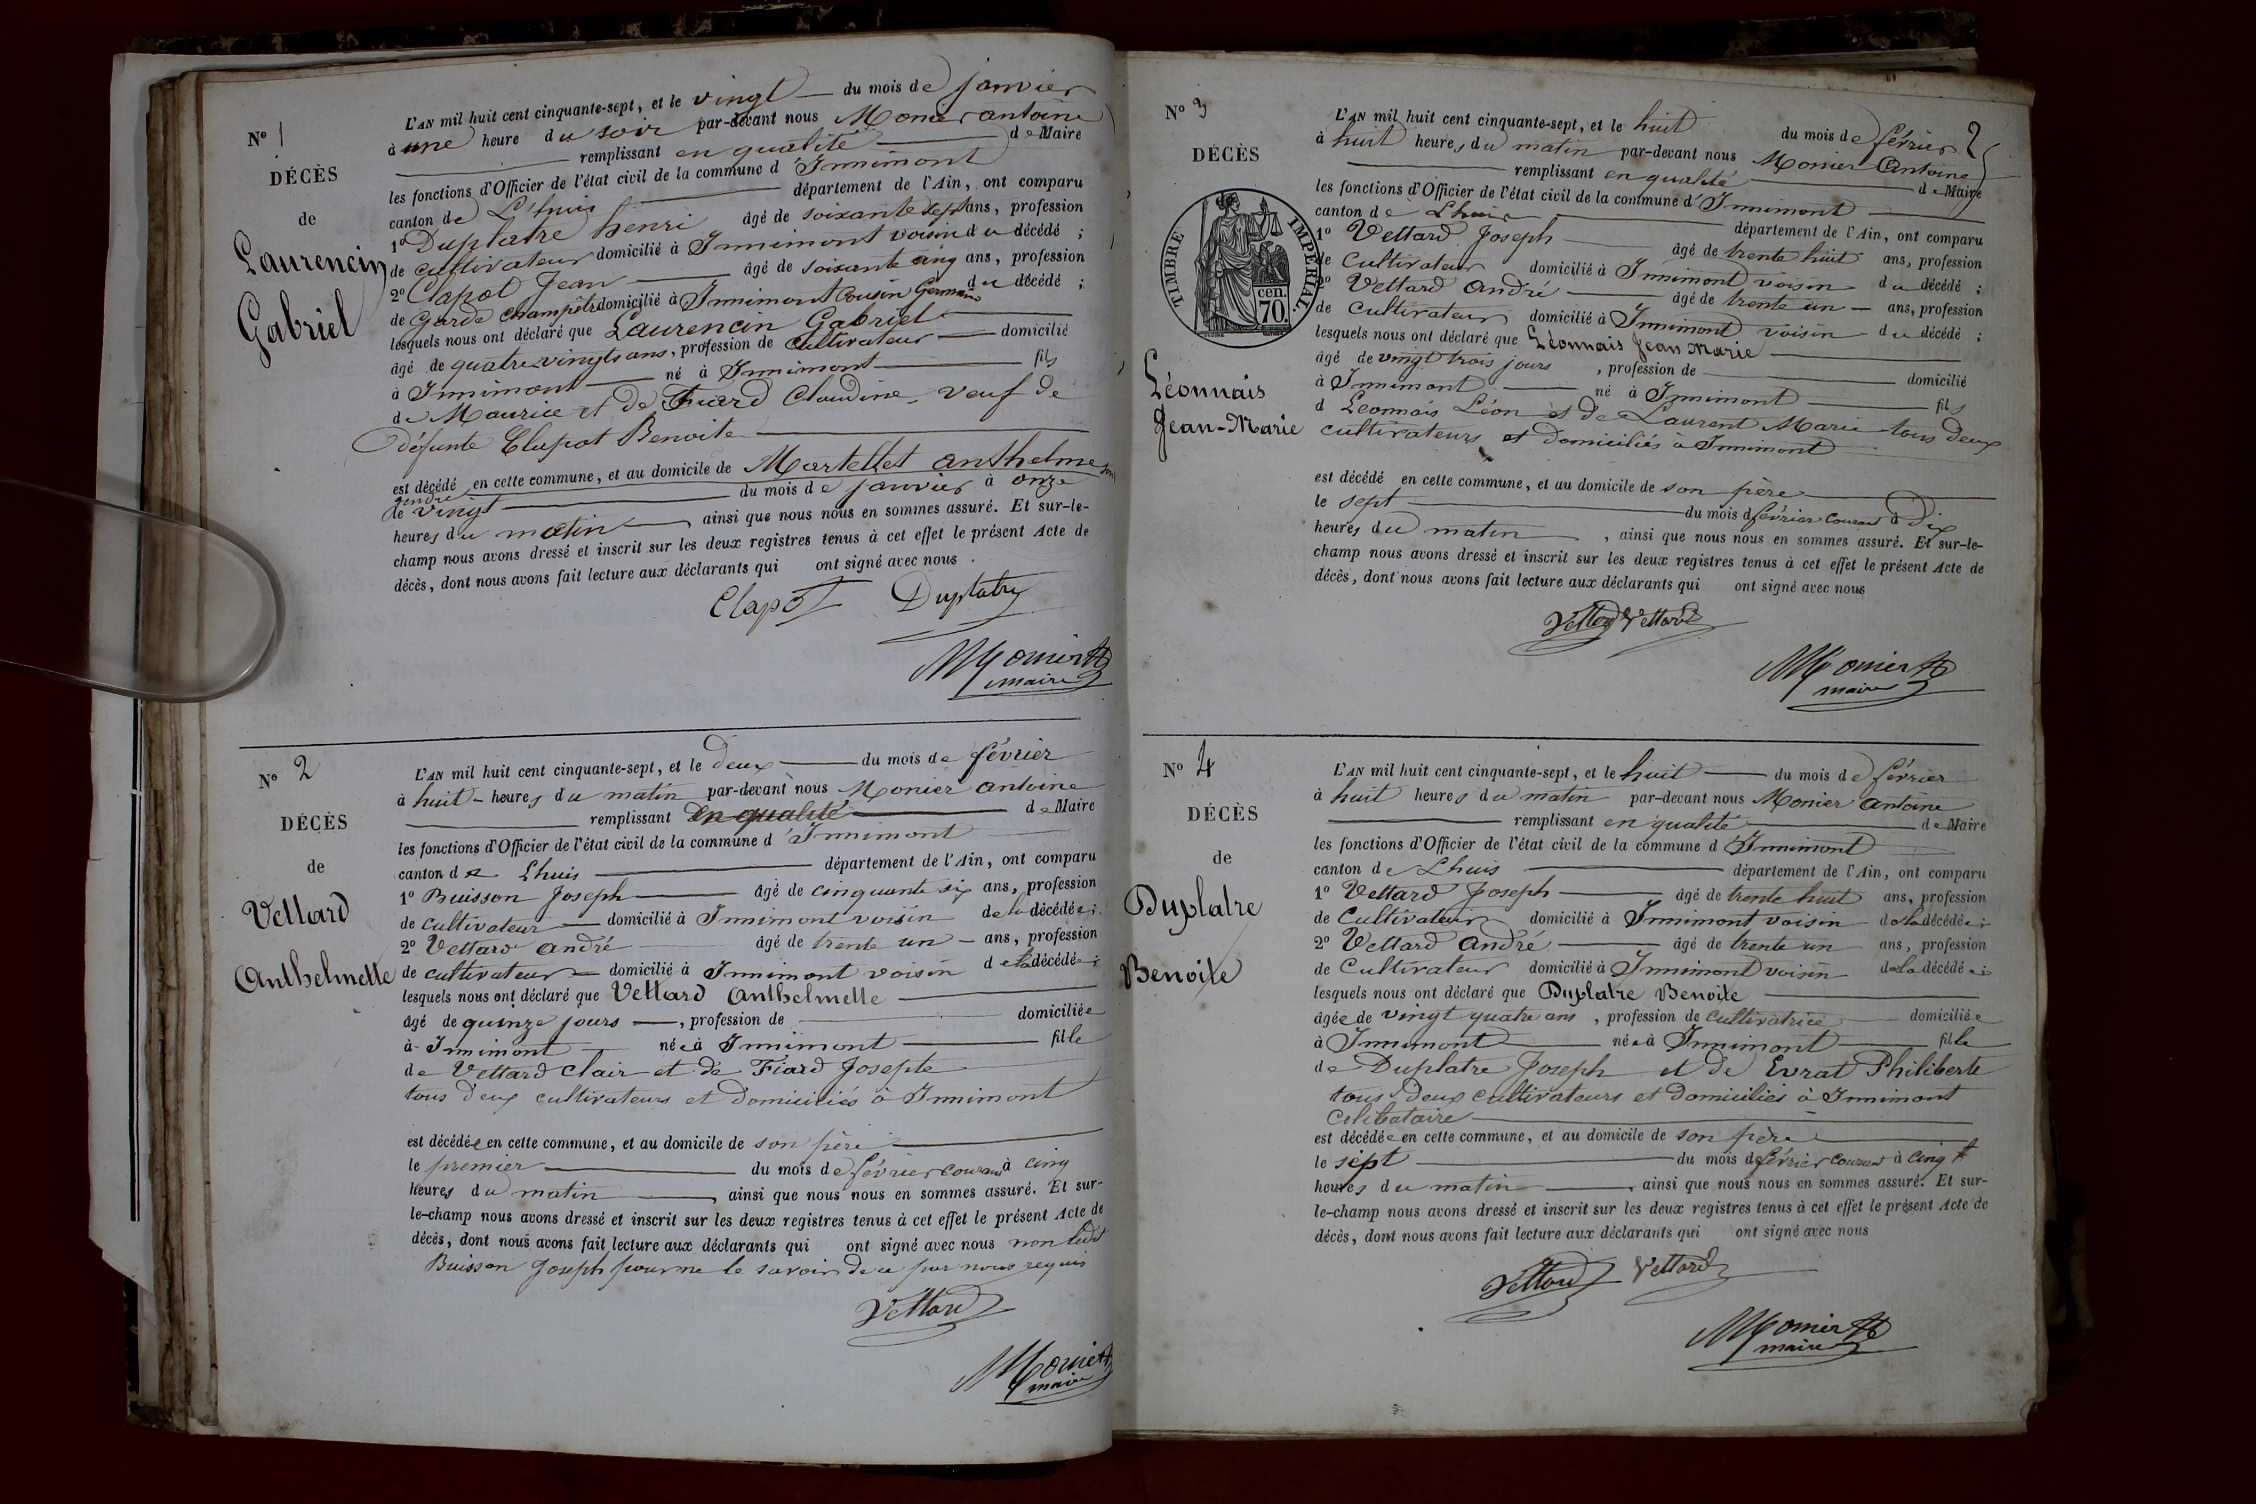 N° 1
DÉCÈS
de
Laurencin
Gabriel
L'AN mil huit cent cinquante-sept, et le vingt du mois de janvier
à une heure du soir par-devant nous Monier antoine
remplissant en qualité de Maire
les fonctions d'Officier de l'état civil de la commune d'Innimont
canton de L'huis département de l'Ain, ont comparu
1° Duplatre henri âgé de soixante sept ans, profession
de cultivateur domicilié à Innimont voisin du décédé ;
2° Clapot Jean âgé de soixante cinq ans, profession
de Garde Champêtre domicilié à Innimont Cousin Germain du décédé ;
lesquels nous ont déclaré que Laurencin Gabriel
âgé de quatre vingts ans, profession de Cultivateur domicilié
à Innimont né à Innimont fils
de Maurice et de Fiard Claudine, veuf de
défunte Clapot Benoite
est décédé en cette commune, et au domicile de Martellet anthelme son
gendre
le vingt du mois de janvier à onze
heures du matin, ainsi que nous nous en sommes assuré. Et sur-le-
champ nous avons dressé et inscrit sur les deux registres tenus à cet effet le présent Acte de
décès, dont nous avons fait lecture aux déclarants qui ont signé avec nous.
Clapot Duplatre
Monier A
maire
N° 2
DÉCÈS
de
Vettard
Anthelmette
L'AN mil huit cent cinquante-sept, et le deux du mois de février
à huit heures du matin par-devant nous Monier antoine
remplissant en qualité de Maire
les fonctions d'Officier de l'état civil de la commune d'Innimont
canton de Lhuis département de l'Ain, ont comparu
1° Buisson Joseph âgé de cinquante six ans, profession
de cultivateur domicilié à Innimont voisin de la décédée ;
2° Vettard andré âgé de trente un ans, profession
de cultivateur domicilié à Innimont voisin de la décédée ;
lesquels nous ont déclaré que Vettard Anthelmette
âgé de quinze jours, profession de domiciliée
à Innimont née à Innimont fille
de Vettard Clair et de Fiard Josephte
tous deux cultivateurs et domiciliés à Innimont
est décédée en cette commune, et au domicile de son père
le premier du mois de février courant à cinq
heures du matin, ainsi que nous nous en sommes assuré. Et sur-
le-champ nous avons dressé et inscrit sur les deux registres tenus à cet effet le présent Acte de
décès, dont nous avons fait lecture aux déclarants qui ont signé avec nous non ledit
Buisson Joseph pour ne le savoir de ce par nous requis
Vettard
Monier A
maire
2
N° 3
DÉCÈS
TIMBRE IMPÉRIAL.
cen.
70.
Léonnais
Jean-Marie
L'AN mil huit cent cinquante-sept, et le huit du mois de février
à huit heures du matin par-devant nous Monier Antoine
remplissant en qualité de Maire
les fonctions d'Officier de l'état civil de la commune d'Innimont
canton de Lhuis département de l'Ain, ont comparu
1° Vettard Joseph âgé de trente huit ans, profession
de Cultivateur domicilié à Innimont voisin du décédé ;
2° Vettard André âgé de trente un ans, profession
de Cultivateur domicilié à Innimont voisin du décédé ;
lesquels nous ont déclaré que Léonnais Jean Marie
âgé de vingt trois jours, profession de domicilié
à Innimont né à Innimont fils
d Leonnais Léon et de Laurent Marie tous deux
cultivateurs et domiciliés à Innimont
est décédé en cette commune, et au domicile de son père
le sept du mois d février courant à Dix
heures du matin, ainsi que nous nous en sommes assuré. Et sur-le-
champ nous avons dressé et inscrit sur les deux registres tenus à cet effet le présent Acte de
décès, dont nous avons fait lecture aux déclarants qui ont signé avec nous
Vettard Vettard
Monier A
maire
N° 4
DÉCÈS
de
Duplatre
Benoite
L'AN mil huit cent cinquante-sept, et le huit du mois de février
à huit heures du matin par-devant nous Monier Antoine
remplissant en qualité de Maire
les fonctions d'Officier de l'état civil de la commune d'Innimont
canton de Lhuis département de l'Ain, ont comparu
1° Vettard Joseph âgé de trente huit ans, profession
de Cultivateur domicilié à Innimont voisin de la décédée ;
2° Vettard André âgé de trente un ans, profession
de Cultivateur domicilié à Innimont voisin de la décédée ;
lesquels nous ont déclaré que Duplatre Benoite
âgée de vingt quatre ans, profession de cultivatrice domiciliée
à Innimont née à Innimont fille
de Duplatre Joseph et de Evrat Philiberte
tous deux cultivateurs et domiciliés à Innimont
Célibataire
est décédée en cette commune, et au domicile de son père
le sept du mois d février courant à cinq
heures du matin, ainsi que nous nous en sommes assuré. Et sur-
le-champ nous avons dressé et inscrit sur les deux registres tenus à cet effet le présent Acte de
décès, dont nous avons fait lecture aux déclarants qui ont signé avec nous
Vettard Vettard
Monier A
maire